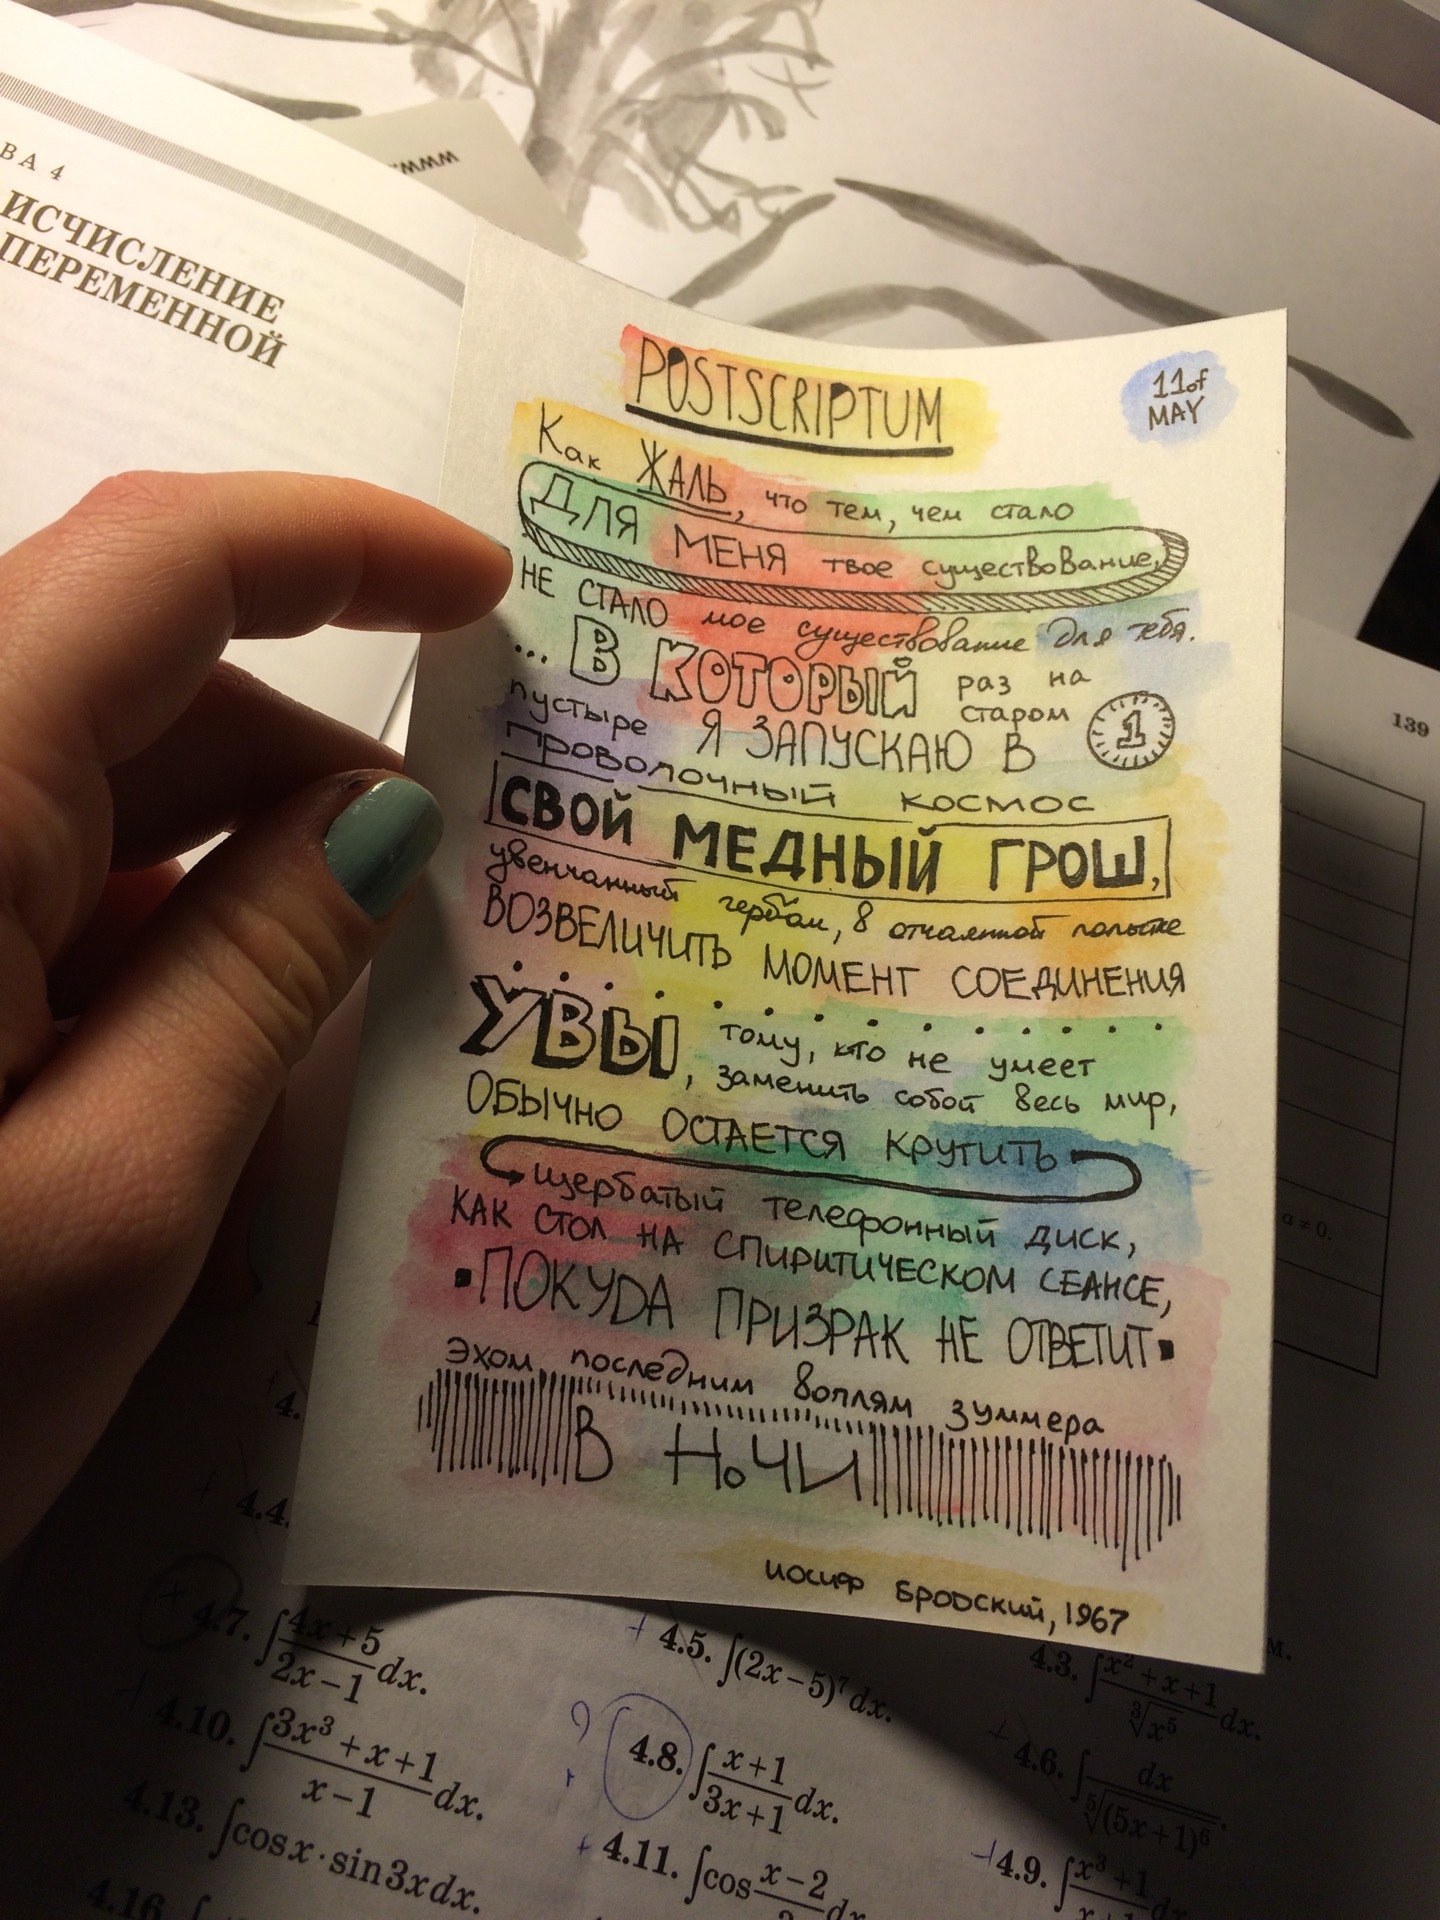 ВА 4
ИСЧИСЛЕНИЕ
ПЕРЕМЕННОЙ
www.
POSTSCRIPTUM
11 of
MAY
Как ЖАЛЬ, что тем, чем стало
ДЛЯ МЕНЯ твое существование,
НЕ СТАЛО мое существование для тебя.
... В КОТОРЫЙ раз на
старом
1
пустыре Я ЗАПУСКАЮ В
проволочный космос
СВОЙ МЕДНЫЙ ГРОШ,
увенчанный гербом, в отчаянной попытке
ВОЗВЕЛИЧИТЬ МОМЕНТ СОЕДИНЕНИЯ
УВЫ, тому, кто не умеет
заменить собой весь мир,
ОБЫЧНО ОСТАЕТСЯ КРУТИТЬ
щербатый телефонный диск,
КАК СТОЛ НА СПИРИТИЧЕСКОМ СЕАНСЕ,
ПОКУДА ПРИЗРАК НЕ ОТВЕТИТ
эхом последним воплям зуммера
В НОЧИ
иосиф Бродский, 1967
139
a ≠ 0.
м.
4.
4.4.
4.3. ∫(x² + x + 1)/∛x⁵ dx.
4.5. ∫(2x − 5)⁷ dx.
4.6. ∫dx/⁵√(5x + 1)⁶.
4.7. ∫(4x + 5)/(2x − 1) dx.
4.8. ∫(x + 1)/(3x + 1) dx.
4.9. ∫(x³ + 1)/(x + 1) dx
4.10. ∫(3x³ + x + 1)/(x − 1) dx.
4.11. ∫cos (x − 2)/ dx
4.13. ∫cos x · sin 3x dx.
4.16. ∫